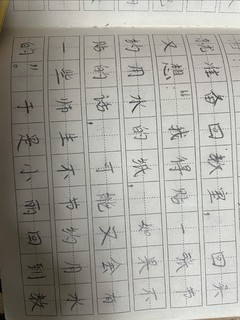 就准备回教室,回头
又想:“我得贴一张节
约用水的纸,如果不
贴的话,可能又会有
一些师生不节约用水
的”。于是小丽回到教